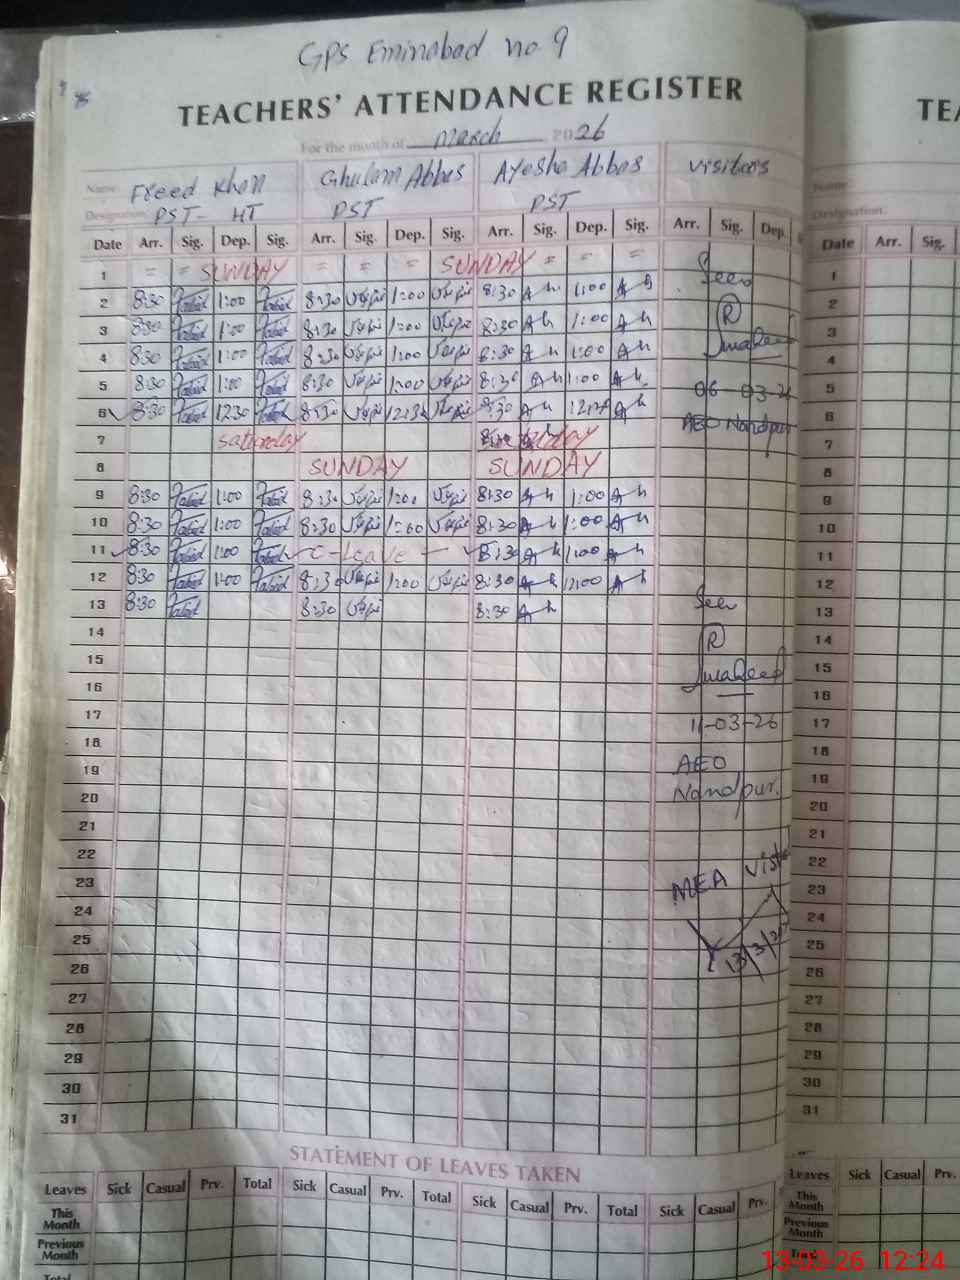 GPS Eminabad no. 9
TEACHERS' ATTENDANCE REGISTER
For the month of March 2026
Name Freed Khan Ghulam Abbas Ayesha Abbas Visitors
Designation PST- HT PST PST
Date Arr. Sig. Dep. Sig. Arr. Sig. Dep. Sig. Arr. Sig. Dep. Sig. Arr. Sig. Dep.
1 = = SUNDAY = = = SUNDAY = =
2 8:30 1:00 8:30 1:00 8:30 1:00
3 8:30 1:00 8:30 1:00 8:30 1:00
4 8:30 1:00 8:30 1:00 8:30 1:00
5 8:30 1:00 8:30 1:00 8:30 1:00
6 8:30 12:30 8:30 12:30 8:30
7 Saturday
8 SUNDAY SUNDAY
9 8:30 1:00 8:30 1:00 8:30 1:00
10 8:30 1:00 8:30 1:00 8:30 1:00
11 8:30 1:00 C-Leave 8:30 1:00
12 8:30 1:00 8:30 1:00 8:30
13 8:30 8:30 8:30
14
15
16
17
18
19
20
21
22
23
24
25
26
27
28
29
30
31
Seen
R
06-03-26
AEO Nandpur
Seen
R
11-03-26
AEO
Nandpur.
MEA
13/3/26
STATEMENT OF LEAVES TAKEN
Leaves Sick Casual Prv. Total Sick Casual Prv. Total Sick Casual Prv. Total Sick Casual Prv.
This Month
Previous Month
Total
TEA
Name
Designation
Date Arr. Sig.
1
2
3
4
5
6
7
8
9
10
11
12
13
14
15
16
17
18
19
20
21
22
23
24
25
26
27
28
29
30
31
Leaves Sick Casual Prv.
This Month
Previous Month
Total
13-03-26 12:24